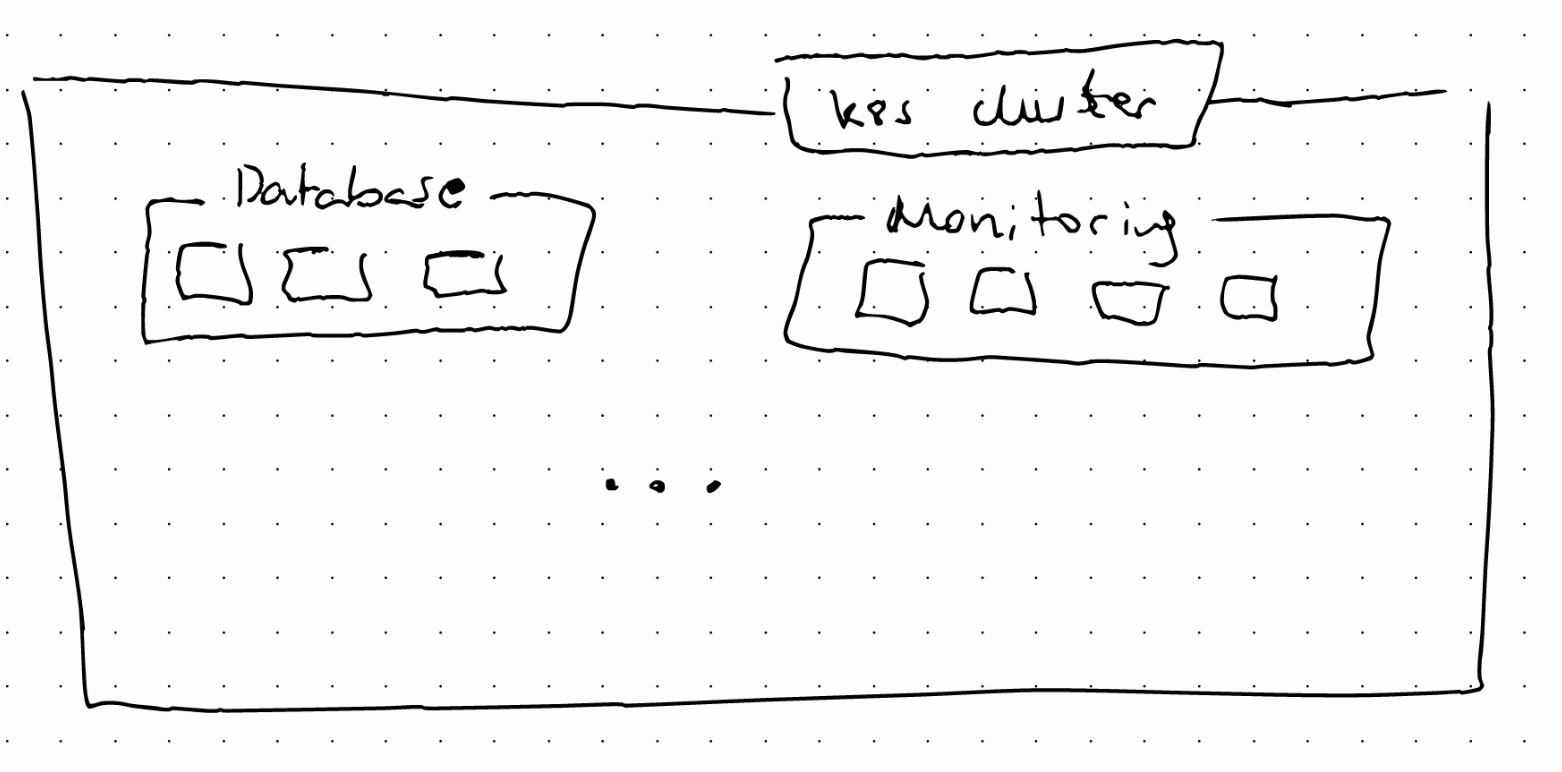 k8s cluster
Database
Monitoring
...